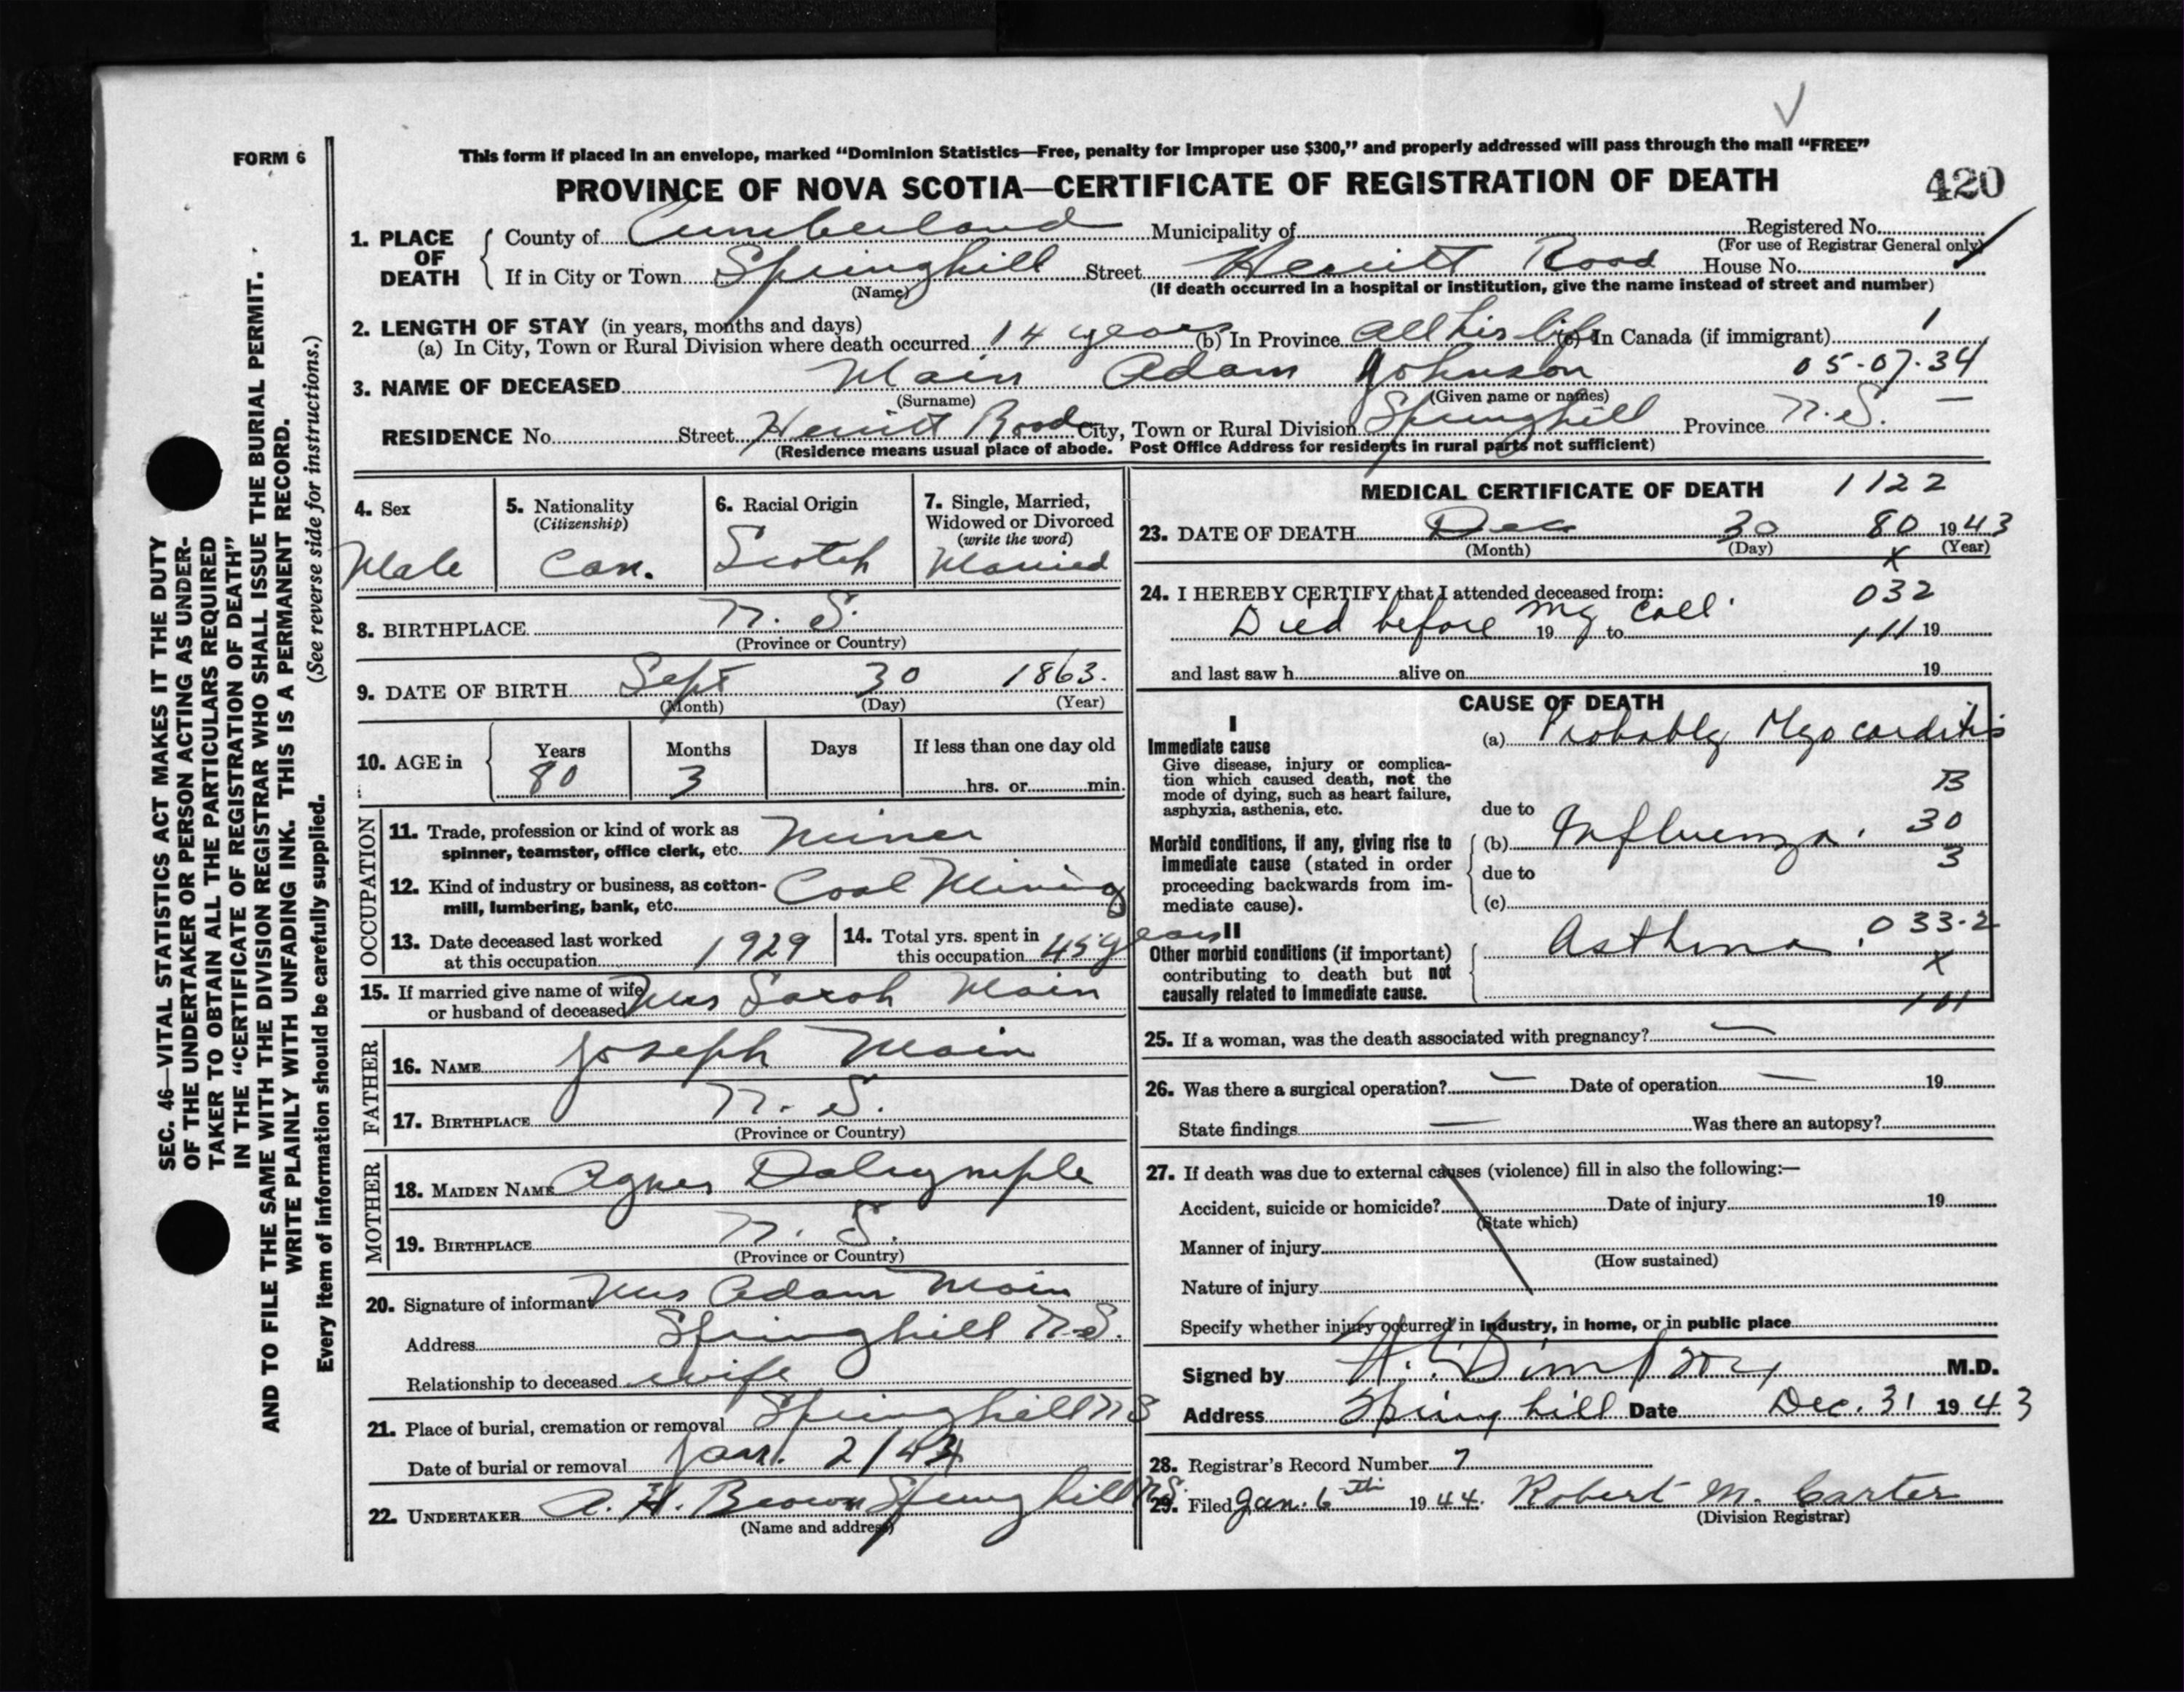 This form if placed in an envelope, marked “Dominion Statistics—Free, penalty for improper use $300,” and properly addressed will pass through the mail “FREE”
FORM 6
PROVINCE OF NOVA SCOTIA—CERTIFICATE OF REGISTRATION OF DEATH
420
SEC. 46—VITAL STATISTICS ACT MAKES IT THE DUTY
OF THE UNDERTAKER OR PERSON ACTING AS UNDER-
TAKER TO OBTAIN ALL THE PARTICULARS REQUIRED
IN THE “CERTIFICATE OF REGISTRATION OF DEATH”
AND TO FILE THE SAME WITH THE DIVISION REGISTRAR WHO SHALL ISSUE THE BURIAL PERMIT.
WRITE PLAINLY WITH UNFADING INK. THIS IS A PERMANENT RECORD.
Every item of information should be carefully supplied. (See reverse side for instructions.)
1. PLACE OF DEATH
County of Cumberland Municipality of Registered No.
(For use of Registrar General only)
If in City or Town Springhill Street Hewitt Road House No.
(Name) (If death occurred in a hospital or institution, give the name instead of street and number)
2. LENGTH OF STAY (in years, months and days)
(a) In City, Town or Rural Division where death occurred 14 years (b) In Province All his life (c) In Canada (if immigrant) 1
3. NAME OF DECEASED Main Adam Johnson 05-07-34
(Surname) (Given name or names)
RESIDENCE No. Street Hewitt Road City, Town or Rural Division Springhill Province N.S. —
(Residence means usual place of abode. Post Office Address for residents in rural parts not sufficient)
4. Sex Male
5. Nationality (Citizenship) Can.
6. Racial Origin Scotch
7. Single, Married, Widowed or Divorced (write the word) Married
8. BIRTHPLACE N. S.
(Province or Country)
9. DATE OF BIRTH Sept 30 1863.
(Month) (Day) (Year)
10. AGE in Years 80 Months 3 Days If less than one day old hrs. or min.
OCCUPATION
11. Trade, profession or kind of work as
spinner, teamster, office clerk, etc. Miner
12. Kind of industry or business, as cotton-
mill, lumbering, bank, etc. Coal Mining
13. Date deceased last worked
at this occupation 1929
14. Total yrs. spent in
this occupation 45 years
15. If married give name of wife
or husband of deceased Mrs Sarah Main
FATHER
16. NAME Joseph Main
17. BIRTHPLACE N. S.
(Province or Country)
MOTHER
18. MAIDEN NAME Agnes Dalrymple
19. BIRTHPLACE N. S.
(Province or Country)
20. Signature of informant Mrs Adam Main
Address Springhill N.S.
Relationship to deceased wife
21. Place of burial, cremation or removal Springhill N S
Date of burial or removal Jan. 2/44
22. UNDERTAKER A. H. Brown Springhill N.S.
(Name and address)
MEDICAL CERTIFICATE OF DEATH 1122
23. DATE OF DEATH Dec 30 80 1943
(Month) (Day) x (Year)
24. I HEREBY CERTIFY that I attended deceased from: 032
Died before my call 19 to 111 19
and last saw h alive on 19
CAUSE OF DEATH
I
Immediate cause
Give disease, injury or complica-
tion which caused death, not the
mode of dying, such as heart failure,
asphyxia, asthenia, etc.
(a) Probably Myocarditis
B
due to
Morbid conditions, if any, giving rise to
immediate cause (stated in order
proceeding backwards from im-
mediate cause).
(b) Influenza. 30
3
due to
(c)
II
Other morbid conditions (if important)
contributing to death but not
causally related to immediate cause.
Asthma. 033-2
x
101
25. If a woman, was the death associated with pregnancy? —
26. Was there a surgical operation? — Date of operation — 19
State findings — Was there an autopsy?
27. If death was due to external causes (violence) fill in also the following:—
Accident, suicide or homicide? Date of injury 19
(State which)
Manner of injury
(How sustained)
Nature of injury
Specify whether injury occurred in industry, in home, or in public place
Signed by M.D.
Address Springhill Date Dec. 31 1943
28. Registrar's Record Number 7
29. Filed Jan. 6th 1944. Robert M. Carter
(Division Registrar)